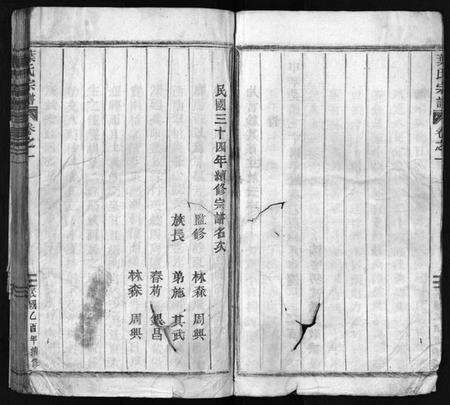 葉氏宗譜
卷之一
民國三十四年續修宗譜名次
監修 林森 周興
族長 弟施 其武
春荷 銀昌
林森 周興
葉氏宗譜
卷之一
民國乙酉年續修